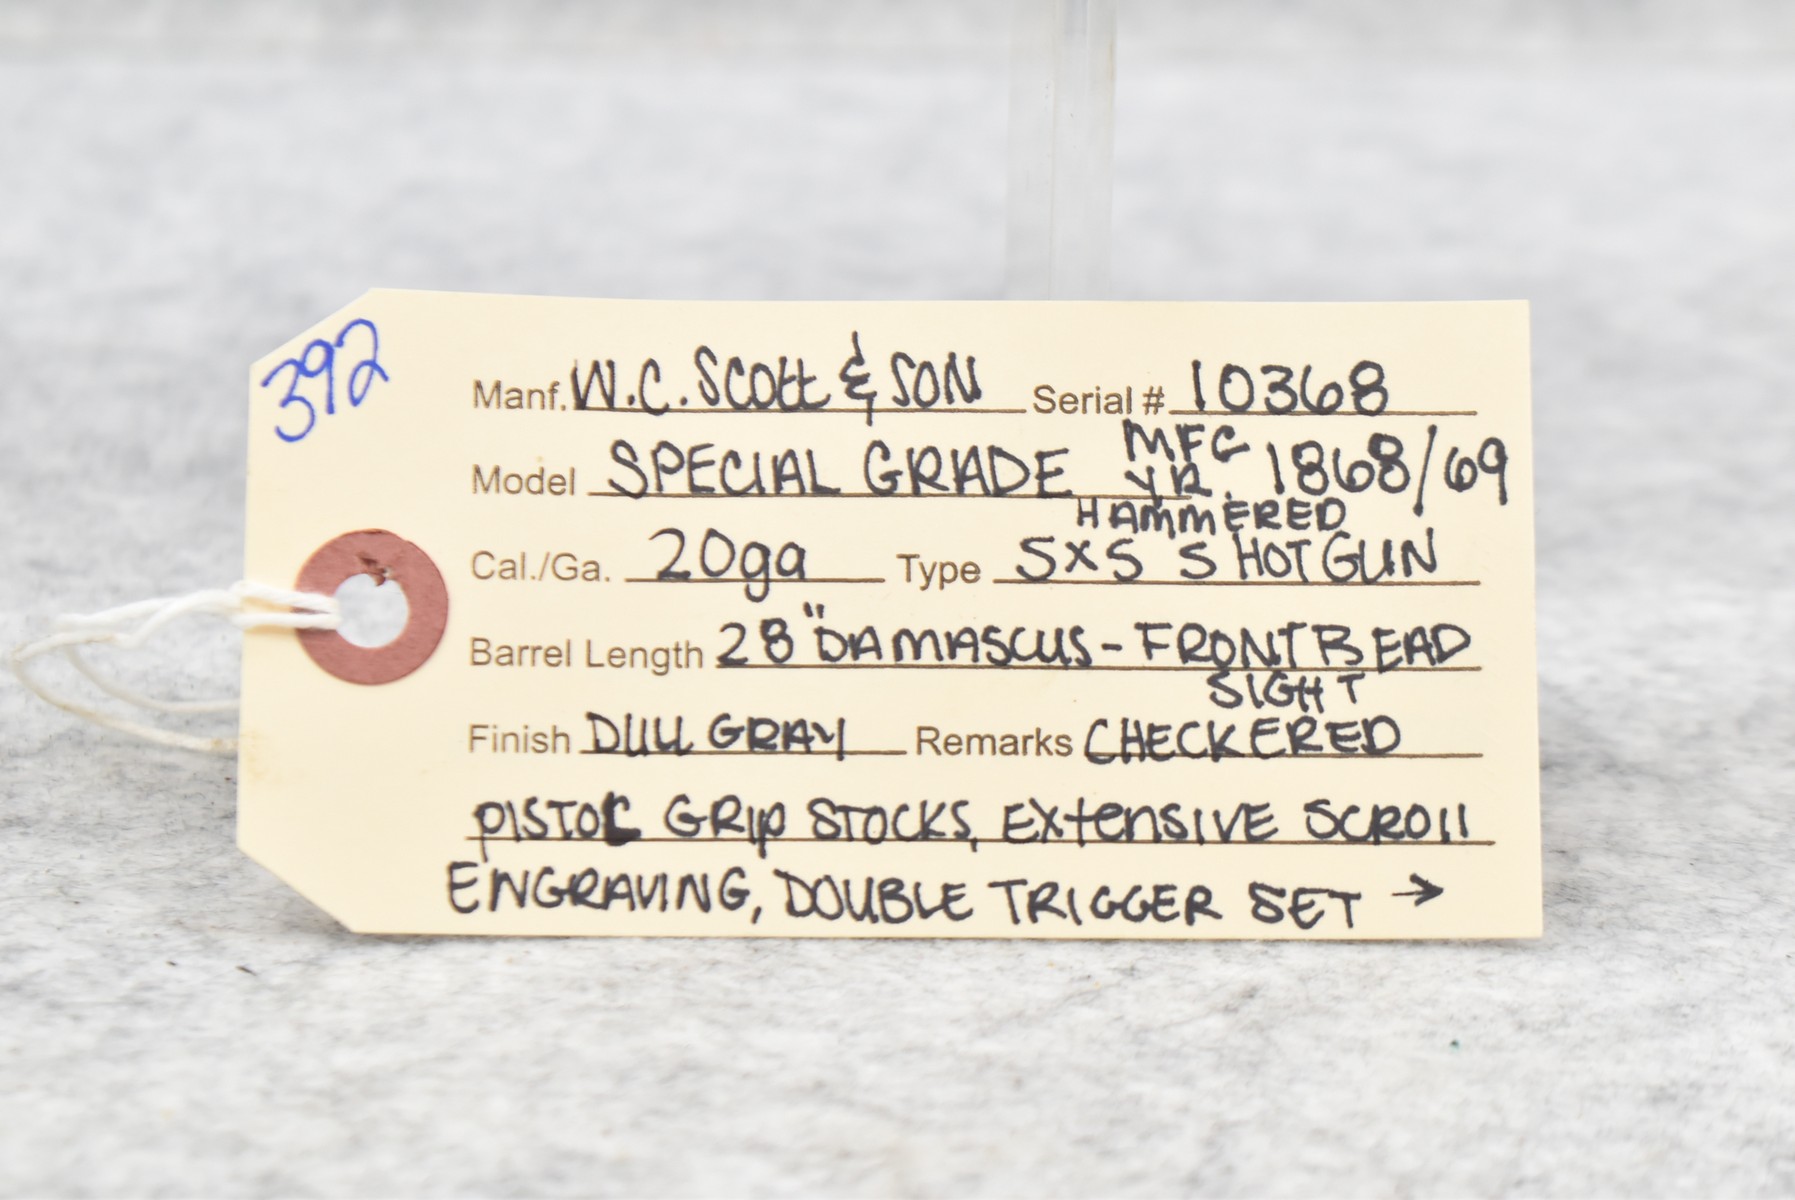 392
Manf. W.C. SCOTT & SON Serial # 10368
Model SPECIAL GRADE MFG YR. 1868/69
HAMMERED
Cal./Ga. 20ga Type SXS SHOTGUN
Barrel Length 28" DAMASCUS - FRONT BEAD
SIGHT
Finish DULL GRAY Remarks CHECKERED
PISTOL GRIP STOCKS, EXTENSIVE SCROLL
ENGRAVING, DOUBLE TRIGGER SET →